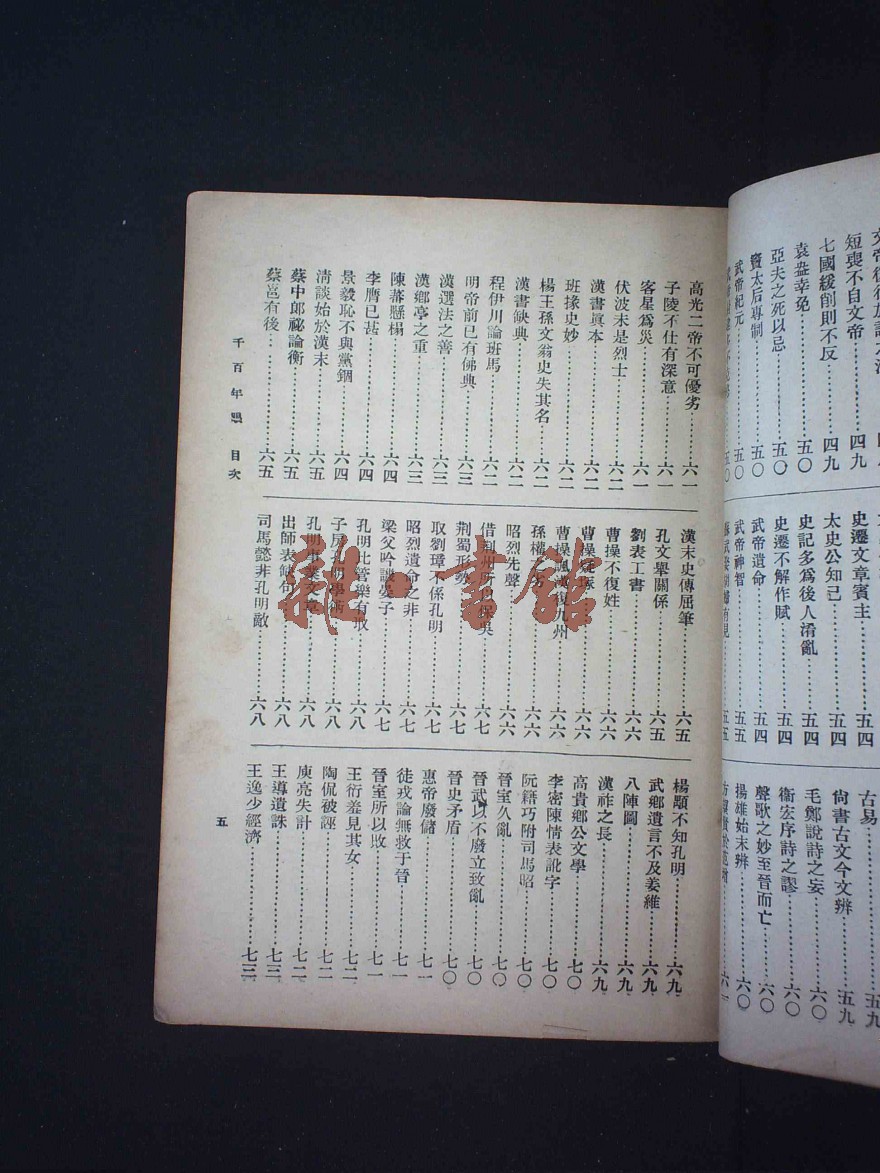 短喪不自文帝……四九
七國緩削則不反……四九
袁盎幸免……五〇
亞夫之死以忌……五〇
竇太后專制……五〇
武帝紀元……五〇
史遷文章賓主……五四
太史公知己……五四
史記多為後人淆亂……五四
史遷不解作賦……五四
武帝遺命……五四
武帝神智……五五
古易……五九
尙書古文今文辨……五九
毛鄭說詩之妄……六〇
衞宏序詩之謬……六〇
聲歌之妙至晉而亡……六〇
揚雄始末辨……六〇
高光二帝不可優劣……六一
子陵不仕有深意……六一
客星為災……六一
伏波未是烈士……六二
漢書眞本……六二
班掾史妙……六二
楊王孫文翁史失其名……六二
漢書缺典……六二
程伊川論班馬……六二
明帝前已有佛典……六三
漢選法之善……六三
漢鄉亭之重……六三
陳蕃懸榻……六四
李膺已甚……六四
景毅恥不與黨錮……六四
淸談始於漢末……六五
蔡中郞祕論衡……六五
蔡邕有後……六五
漢末史傳屈筆……六五
孔文舉關係……六五
劉表工書……六六
曹操不復姓……六六
曹操疑塚……六六
曹操諷漢復九州……六六
孫權之劣……六六
昭烈先聲……六六
借荊州所以保吳……六七
荆蜀形勢……六七
取劉璋不係孔明……六七
昭烈遺命之非……六七
梁父吟譏晏子……六七
孔明比管樂有取……六八
子房孔明學術……六八
孔明事業文章……六八
出師表缺句……六八
司馬懿非孔明敵……六八
楊顒不知孔明……六九
武鄉遺言不及姜維……六九
八陣圖……六九
漢祚之長……六九
高貴鄉公文學……七〇
李密陳情表訛字……七〇
阮籍巧附司馬昭……七〇
晉室久亂……七〇
晉武以不廢立致亂……七〇
晉史矛盾……七〇
惠帝廢儲……七一
徒戎論無救于晉……七一
晉室所以敗……七一
王衍羞見其女……七二
陶侃被誣……七二
庾亮失計……七二
王導遺誅……七三
王逸少經濟……七三
千百年眼 目次
五
雜·書館